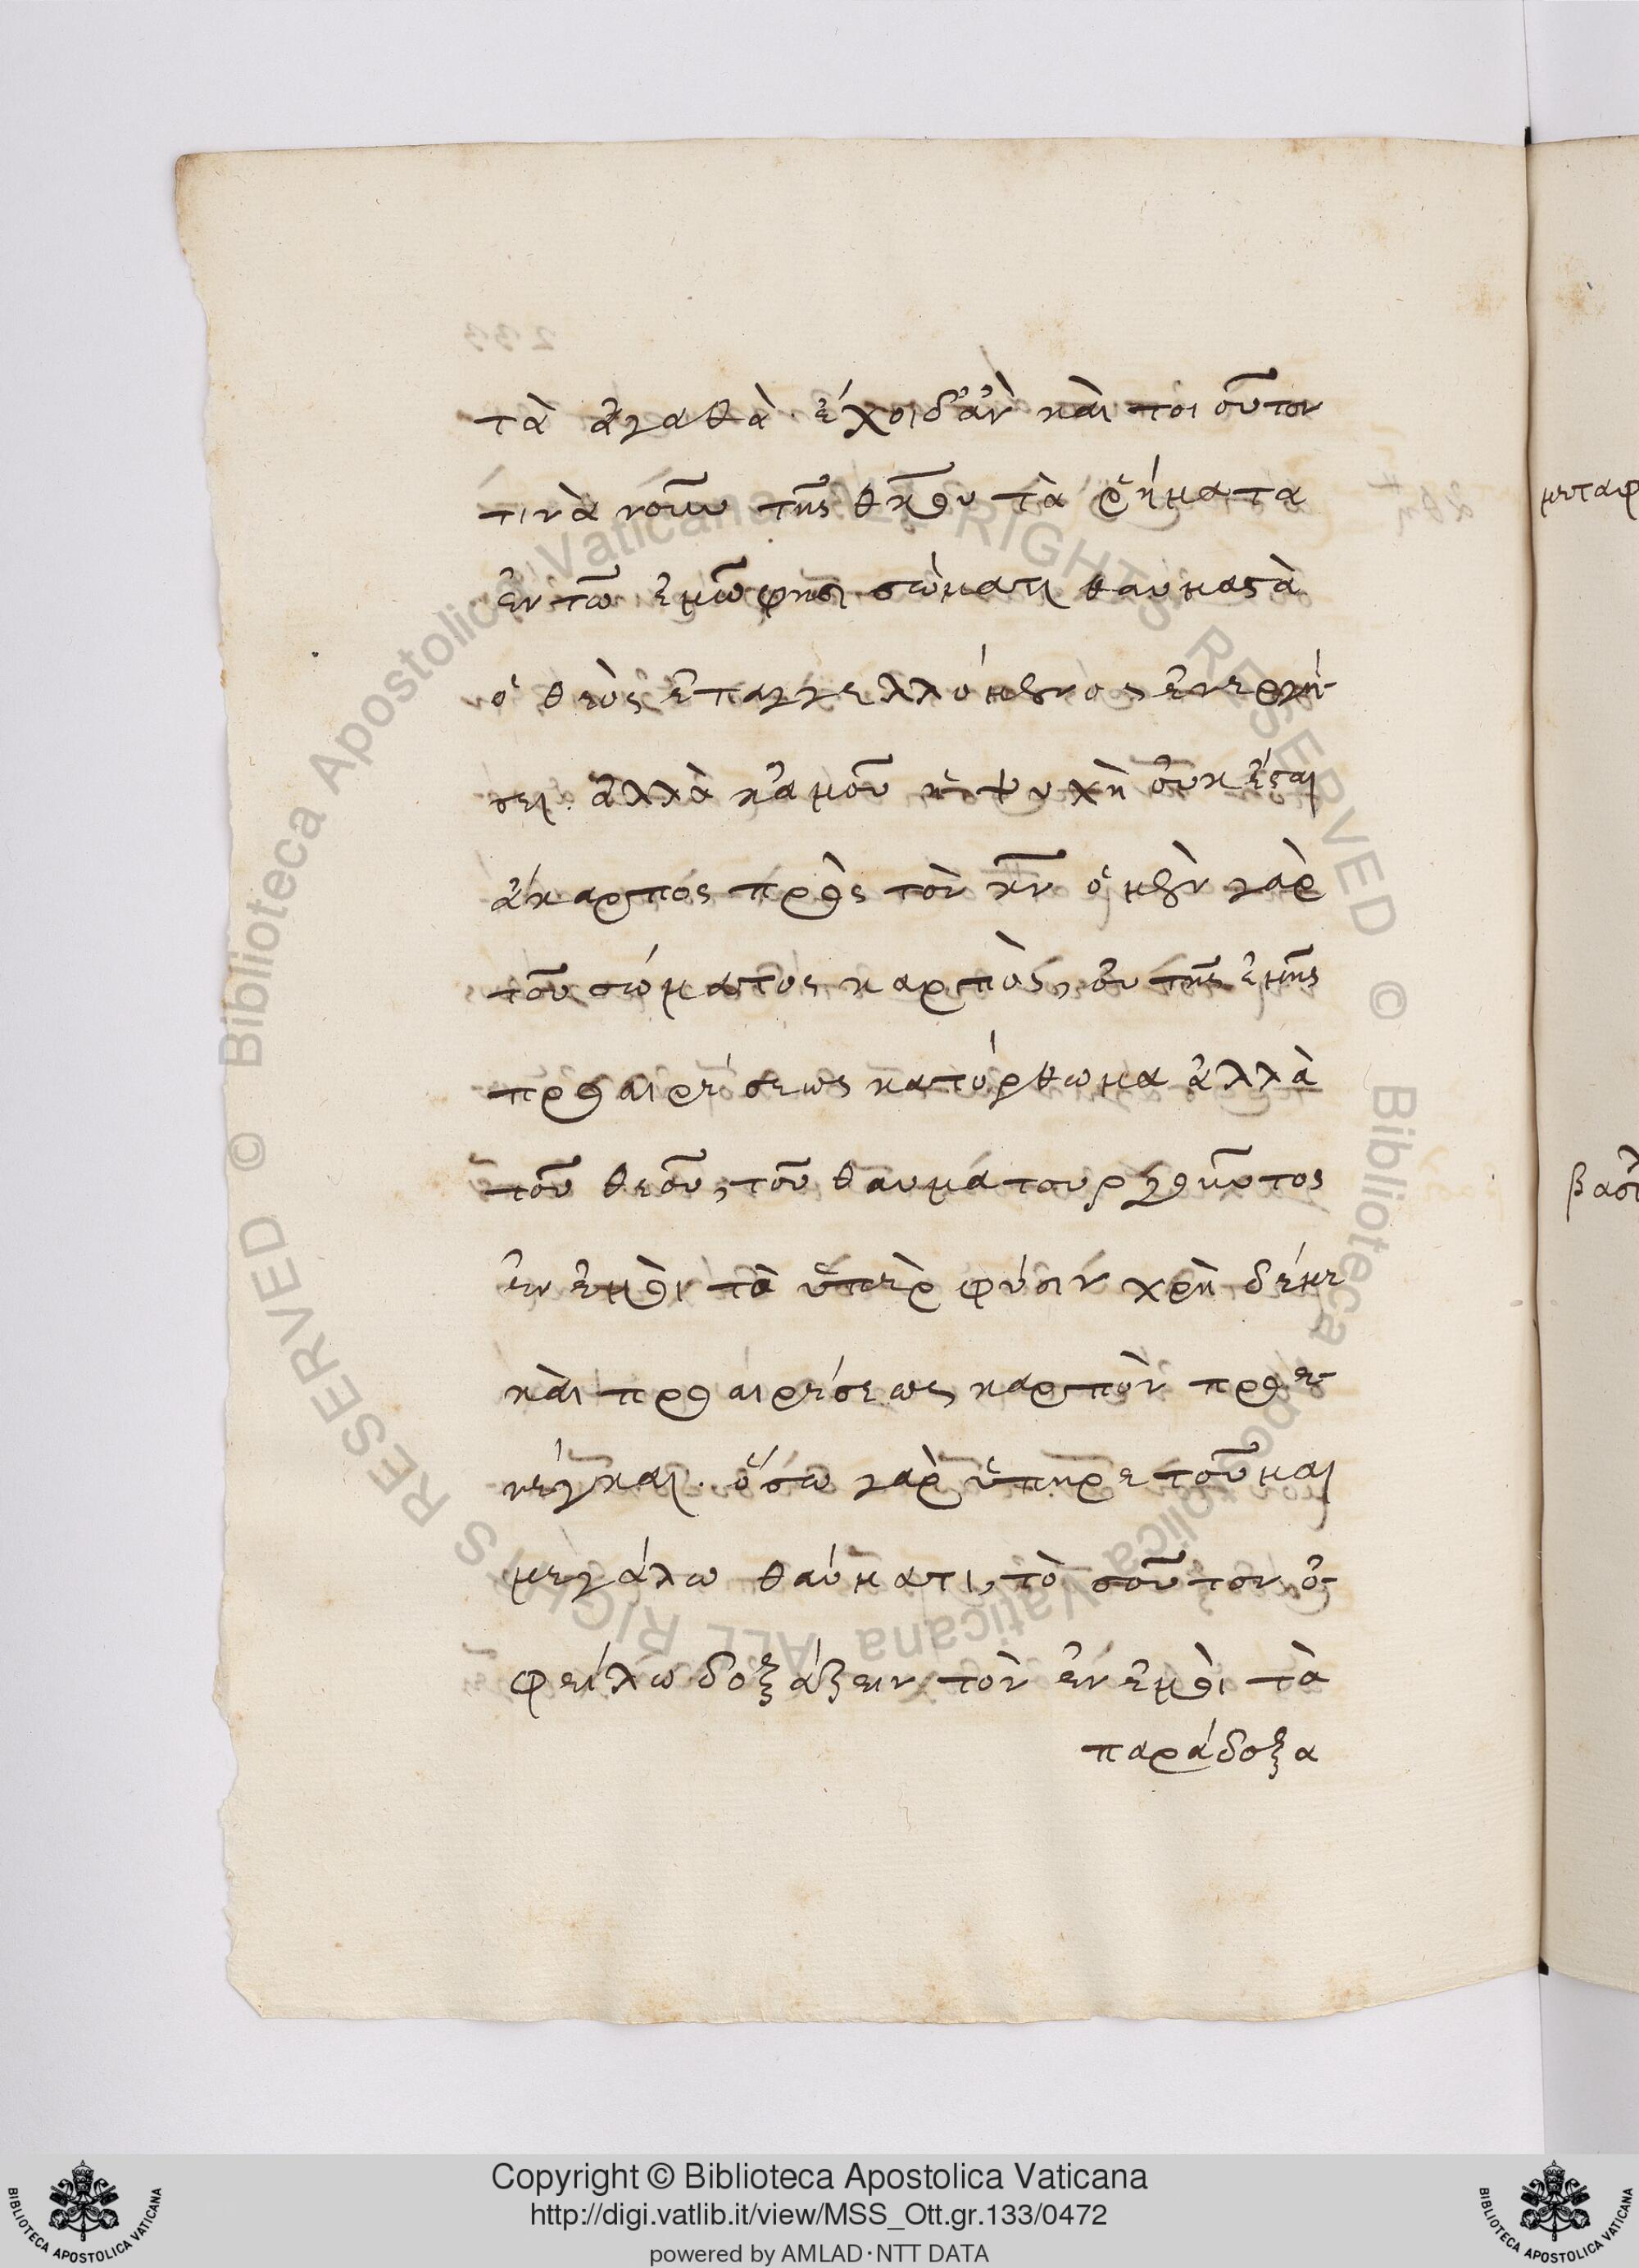 τὰ ἀγαθὰ. ἔχοι δ' ἂν καὶ τοιοῦτον
τινὰ νοῦν τῆς θκου τὰ ῥήματα
ἐν τῶ ἐμῶ φησι σώματι θαυμαστὰ
ὁ θεὸς ἐπαγγελλόμενος, ἐνεργή-
σει. ἀλλὰ κἀμοῦ ἡ ψυχὴ οὐκ ἔσται
ἄκαρπος πρὸς τὸν κν ὁ μὲν γὰρ
τοῦ σώματος καρπὸς, οὐ τῆς ἐμῆς
προαιρέσεως κατόρθωμα ἀλλὰ
τοῦ θεοῦ, τοῦ θαυματουργοῦντος
ἐν ἐμοὶ τὰ ὑπὲρ φύσιν χρὴ δέ με
καὶ προαιρέσεως καρπὸν προσε-
νέγκαι. ὅσω γὰρ ὑπηρετοῦμαι
μεγάλω θαύματι, τοσοῦτον ὀ-
φείλω δοξάζειν τὸν ἐν ἐμοὶ τὰ
παράδοξα
μεταφ
βασι
Copyright © Biblioteca Apostolica Vaticana
http://digi.vatlib.it/view/MSS_Ott.gr.133/0472
powered by AMLAD·NTT DATA
BIBLIOTECA APOSTOLICA VATICANA
BIBLIOTECA APOSTOLICA VATICANA
© Biblioteca Apostolica Vaticana ALL RIGHTS RESERVED
© Biblioteca Apostolica Vaticana ALL RIGHTS RESERVED